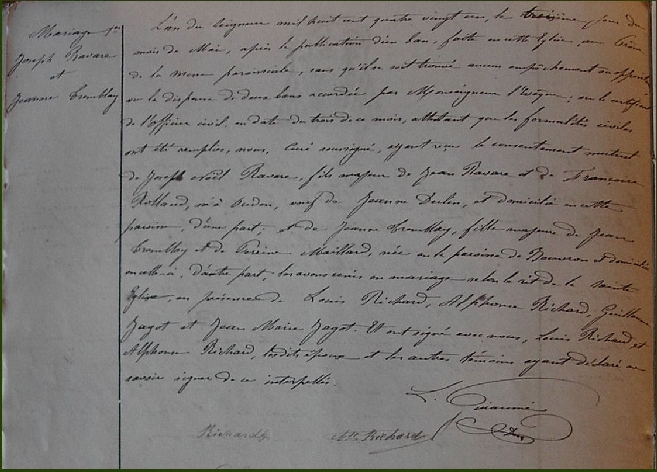 Mariage de
Joseph Ravare
et
Jeanne Tremblay
L'an du Seigneur mil huit cent quatre vingt un, le treizième jour du
mois de Mai, après la publication d'un ban, faite en cette Eglise, au Prône
de la messe paroissiale, sans qu'il se soit trouvé aucun empêchement ou opposition
vu la dispense de deux bans accordée par Monseigneur l'Evêque; vu le certificat
de l'officier civil en date du trois de ce mois, attestant que les formalités civiles
ont été remplies, nous, Curé soussigné, ayant reçu le consentement mutuel
de Joseph Noël Ravare, fils majeur de Jean Ravare et de Françoise
Rolland, né à veuf de et domicilié en cette
paroisse, d'une part; et de Jeanne Tremblay, fille majeure de Jean
Tremblay et de Maillard, née en la paroisse de et domiciliée
en celle-ci, d'autre part, les avons unis en mariage selon le rit de la sainte
Eglise, en présence de Louis Richard, Alphonse Richard, Guillaume
Jagot et Jean Marie Jagot. Et ont signé avec nous, Louis Richard et
Alphonse Richard, lesdits époux et les autres témoins ayant déclaré ne
savoir signer de ce interpellés.
Richard
Alp. Richard